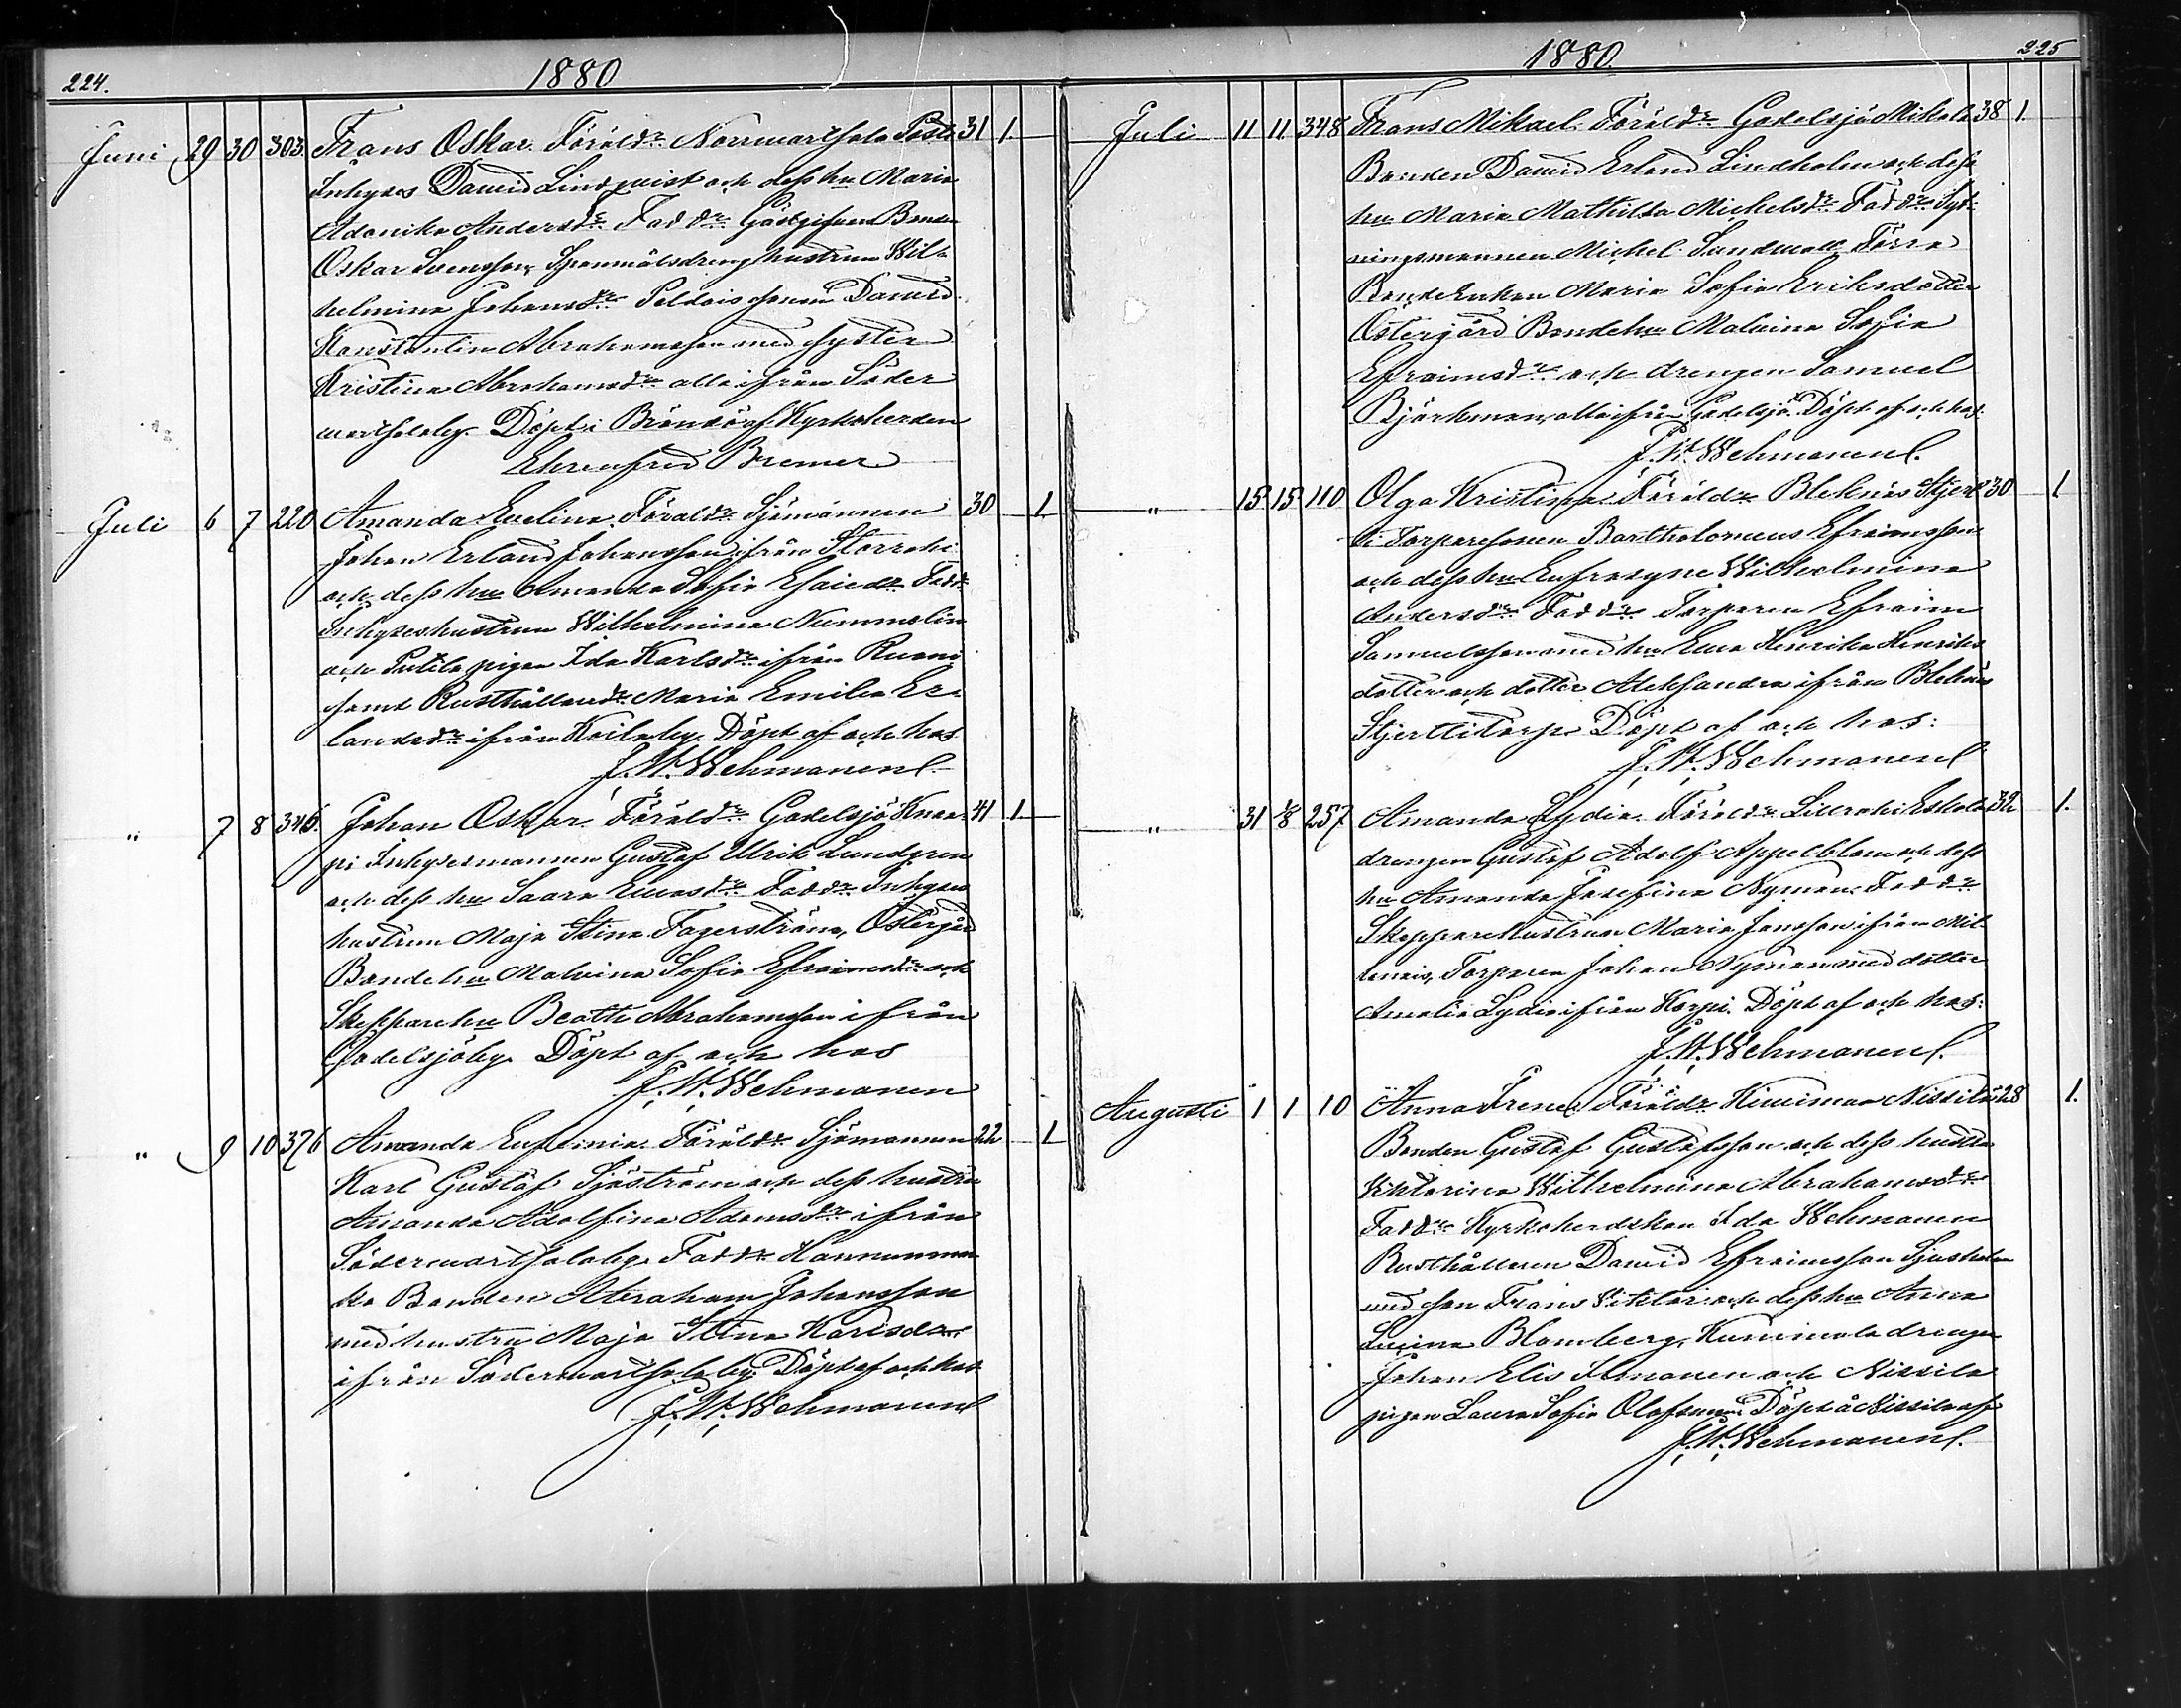 224.
1880
Juni 29 30 303. Frans Oskar. Föräldr Norrwartsala Posti 31 1.
Inhyses David Lindqvist och dess hu Maria
Adonika Andersdr. Faddr
Oskar Svensson, hustrun Wil-
helmina Johansdr. sonen David
Konstantin Abrahamsson med syster
Kristina Abrahamsdr alla ifrån Söder
wartsalaby. Döpt i Brändö af Kyrkoherden
Ehrenfred Bremer
Juli 6 7 220 Amanda Evelina. Föräldr Sjömannen 30 1.
Johan Erland Johansson ifrån Storrahi
och dess hu Amanda Sofia Esaiedr. Faddr
Inhyseshustrun Wilhelmina Nummelin
och pigan Ida Karlsdr ifrån
samt Rusthållaredr Maria Emilia Er-
landsdr ifrån Koilaby. Döpt af och hos
J. W. Wehmanen.
" 7 8 346. Johan Oskar. Föräldr Gadelsjö Knaa- 41 1
pi Inhysesmannen Gustaf Ulrik Lundgren
och dess hu Saara Enasdr Faddr Inhyses
hustrun Maja Stina Fagerström, Östergård
Bondehu Malvina Sofia Efraimsdr och
Skepparehu Beatta Abrahamsson ifrån
Gadelsjöby. Döpt af och hos
J. W. Wehmanen
" 9 10 376 Amanda Eufemia. Föräldr Sjömannen 22 1
Karl Gustaf Sjöström och dess hustru
Amanda Adolfina Adamsdr ifrån
Söderwartsalaby. Faddr
Bonden Abraham Johansson
med hustru Maja Stina Karlsdr
ifrån Söderwartsalaby. Döpt af och hos
J. W. Wehmanen
1880
225
Juli 11 11 348 Frans Mikael. Föräldr Gadelsjö Mikola 38 1.
Bonden David Erland Lindholm och dess
hu Maria Mathilda Michelsdr. Faddr Syt-
ningsmannen Michel Sundwall, Förra
Bondenkan Maria Sofia Eriksdotter
Östergård Bondehu Malvina Sofia
Efraimsdr och drengen Samuel
Björkman, alla ifrån Gadelsjö. Döpt af och hos:
J. W. Wehmanen.
" 15 15 110 Olga Kristina. Föräldr Bleknäs Stjert- 30 1
ti Torparesonen Bartholomeus Efraimsson
och dess hu Eufrosyne Wilhelmina
Andersdr Faddr Torparen Efraim
Samuelsson med hu Eva Henrika Henriks
dotter och dotter Aleksandra ifrån Bleknäs
Stjerttitorp. Döpt af och hos:
J. W. Wehmanen
" 31 1/8 257 Amanda Lydia. Föräldr Lillrahi Eskola 32 1.
drengen Gustaf Adolf Appelblom och dess
hu Amanda Josefina Nyman. Faddr
Skepparehustrun Maria Jansson ifrån Mit-
tenais, Torparen Johan Nyman med dotter
Amalia Lydia ifrån Korpi. Döpt af och hos:
J. W. Wehmanen.
Augusti 1 1 10 Anna Irene. Föräldr Kiviniemi Nissilä 28 1.
Bonden Gustaf Gustafsson och dess hustru
Viktorina Wilhelmina Abrahamsdr
Faddr Kyrkoherdskan Ida Wehmanen
Rusthållaren David Efraimsson Sjusholm
med son Frans Viktor och dess hu Anna
Lovina Blomberg, drengen
Johan Elis Ilmanen och Nissilä
pigan Laura Sofia Olofsson. Döpt å Nissilä af
J. W. Wehmanen.